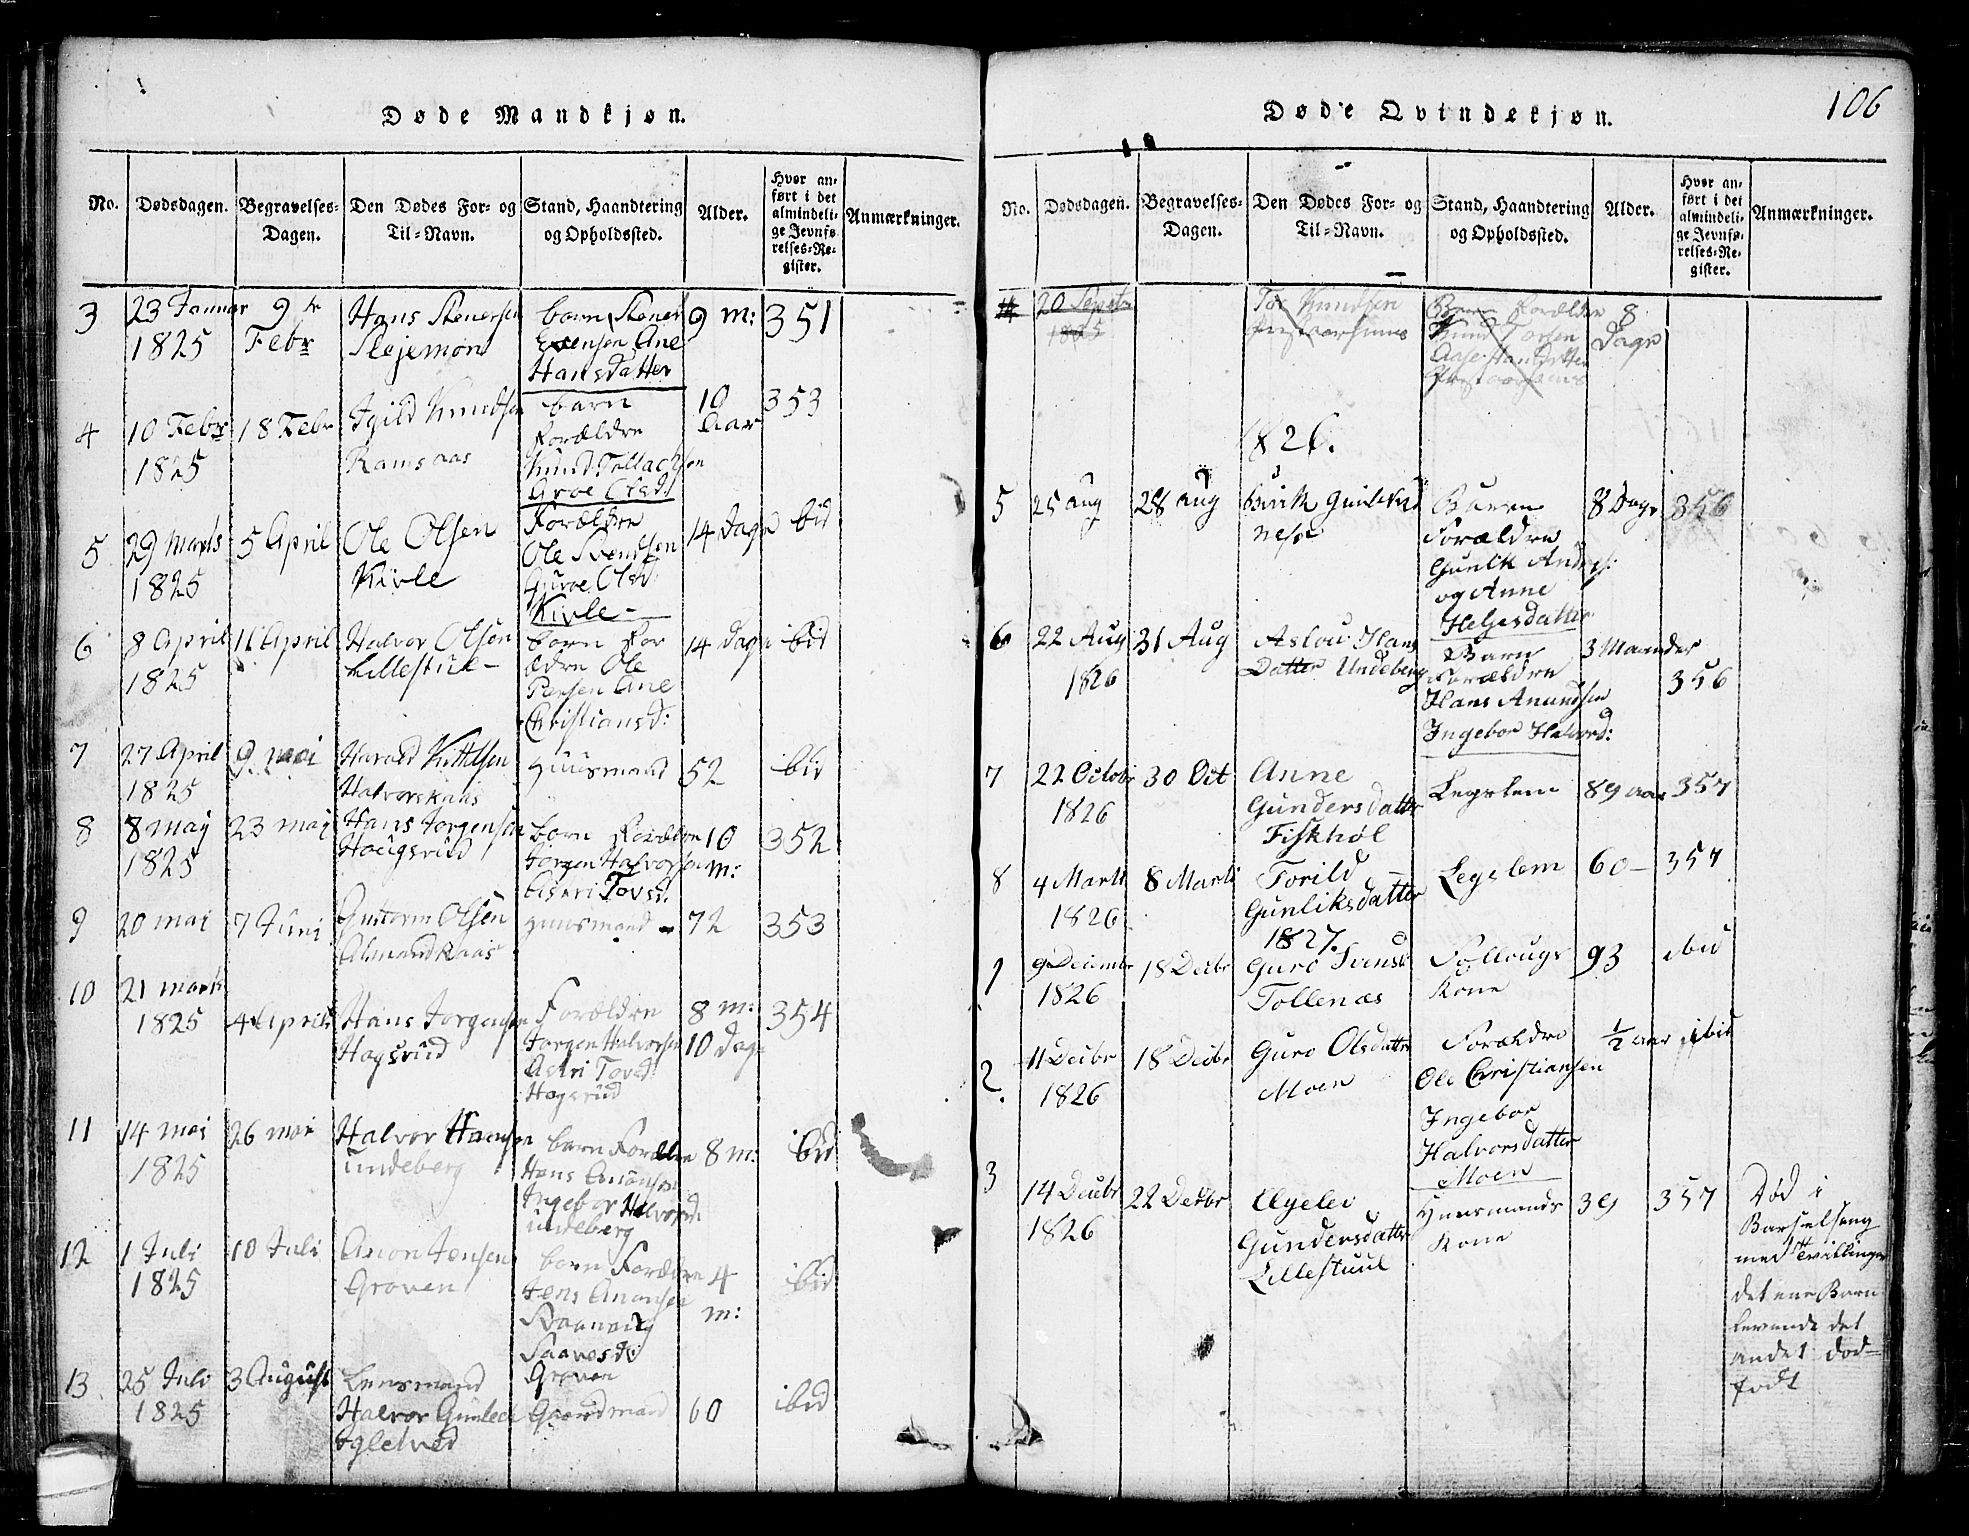 Døde Mandkjøn.
No.
Dødsdagen.
Begravelses-
Dagen.
Den Dødes For- og
Til-Navn.
Stand, Haandtering
og Opholdssted.
Alder.
Hvor an-
ført i det
almindeli-
ge Jevnfø-
relses-Re-
gister.
Anmærkninger.
3
23 Januar
1825
9de
Febr
Hans Stenersen
Slejemon
barn Stener
Evensen Ane
Hansdatter
9 m:
351
4
10 Febr
1825
18 Febr
Igild Knudsen
Ramsaas
barn
Forældre
Knud Tollachsen
Groe Olsd:
10
Aar
353
5
29 Marts
1825
5 April
Ole Olsen
Kivle
Forældre
Ole Svensen
Guroe Olsd:
Kivle -
14 Dage
bid
6
8 April
1825
11 April
Halvor Olsen
Lillestue -
barn For
ældre Ole
Persen Ane
Christiansd:
14 Dage
ibid
7
27 April
1825
9 mai
Harald Kittelsen
Halvorskaas
Huusmand
52
ibid
8
8 may
1825
23 mai
Hans Jorgensen
Hougsrud
barn Forældre
Jorgen Halvorsen
Astri Tovsd:
10
m:
352
9
20 mai
7 Juni
Guttorm Olsen
Almandkaas
Huusmand -
72
353
10
21 marts
1825
4 April
Hans Jorgensen
Hogsrud
Forældre
Jorgen Halvorsen
Astri Tovsd:
Hogsrud
8 m:
10 Dage
354
11
14 mai
1825
26 mai
Halvor Hansen
Undeberg
barn Forældre
Hans Anunsen
Ingebor Halvorsd:
undeberg
8 m:
ibid
12
1 Juli
1825
10 Juli
Anon Jensen
Groven
barn Forældre
Jens Anonsen
Raanaug
Saavesd:
Groven
4
m:
ibid
13
25 Juli
1825
3 August
Lensmand
Halvor Gunlech
Igletved
Gaardmand
60
ibid
106
Døde Qvindekjøn.
No.
Dødsdagen.
Begravelses-
Dagen.
Den Dødes For- og
Til-Navn.
Stand, Haandtering
og Opholdssted.
Alder.
Hvor an-
ført i det
almindeli-
ge Jevnfø-
relses-Re-
gister.
Anmærkninger.
14
20 Septr
1825
Tor Knudsen
Barn Forældre
Knud Torsen
Aase Hansdatter
8
Dage
1826.
5
25 Aug
28 Aug
Birik Gunleks
Barn
Forældre
Gunlk Andrs:
og Anne
Helgesdatter
8 Dage
356
6
22 Aug
1826
31 Aug
Aslou Hans
Datter Undeberg
Barn
Forældre
Hans Anundsen
Ingebor Halvord:
3 Maaneder
356
7
22 Octobr
1826
30 Oct
Anne
Gundersdatter
Fiskhøl
Legslem
89 aar
357
8
4 Marti
1826
8 Marti
Torild
Gunliksdatter
Legslem
60 -
357
1827.
1
9 Decembr
1826
18 Decbr
Guro Svensd
Tollenæs
Follougs
Kone
93
ibid
2.
11 Decbr
1826
18 Decbr
Guro Olsdatter
Moen
Forældre
Ole Christiansen
Ingebor
Halvorsdatter
Moen
½ aar
ibid
3
14 Decbr
1826
22 Decbr
Ayelei
Gundersdatter
Lillestuul
Huusmands
Kone
39
357
Død i
Barselseng
med Tvillinger
det ene Barn
levende det
andet død=
født